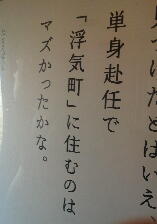 見つけたとはいえ
単身赴任で
「浮気町」に住むのは
マズかったかな。